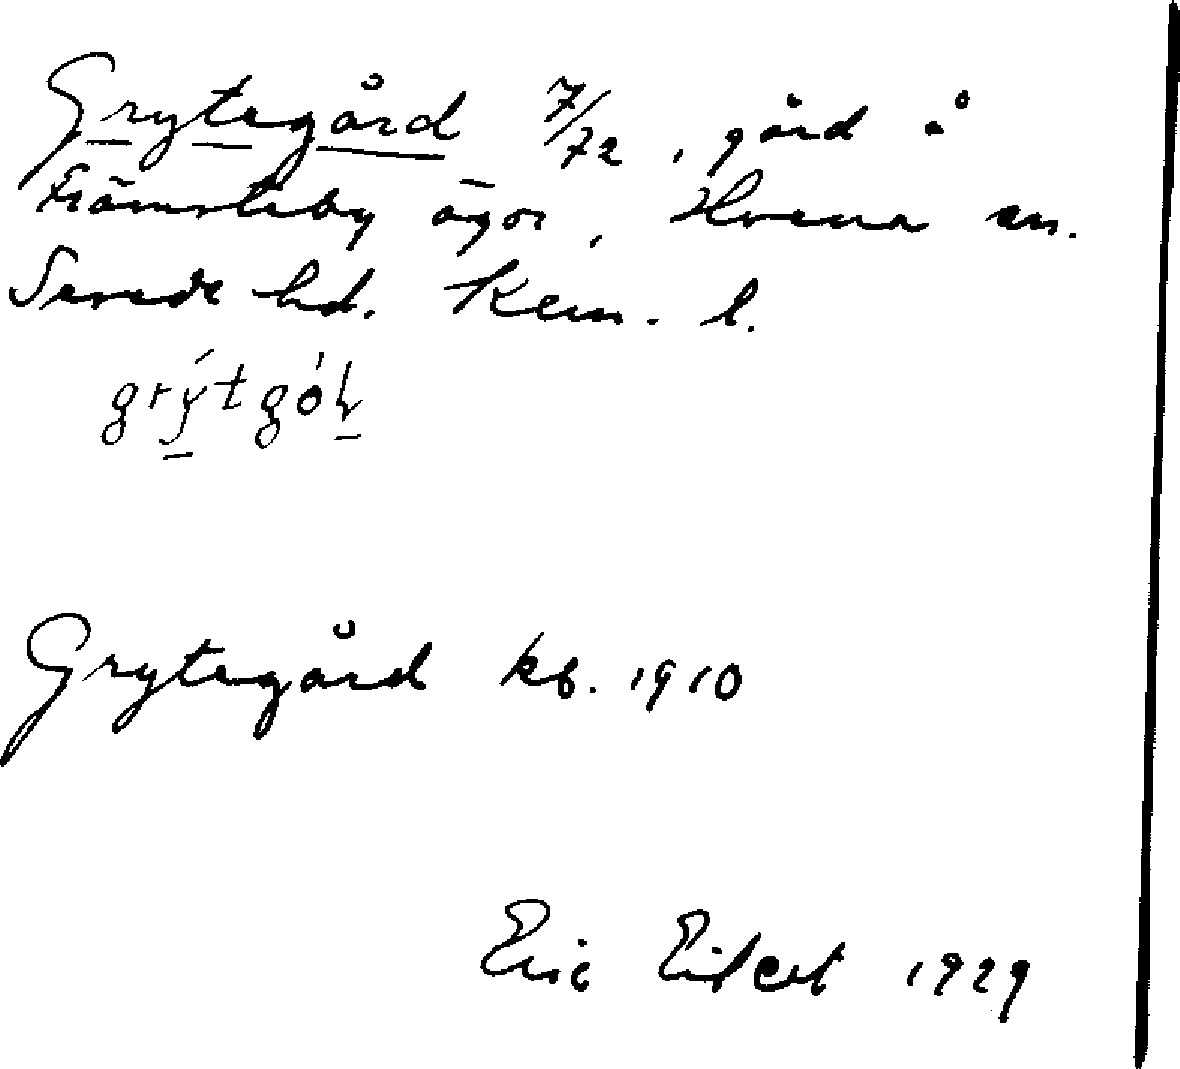 Grytegård 7/72, gård å
Främsteby ägor, Hvena sn.
Sevede hd. Kalm. l.
grýtgó
Grytegård kb. 1910
Eric 1929